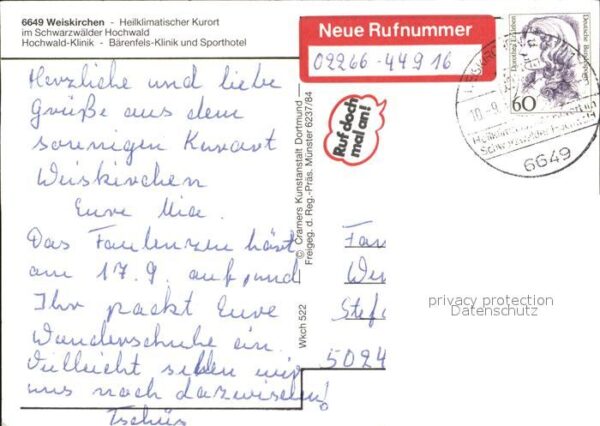 6649 Weiskirchen - Heilklimatischer Kurort
im Schwarzwälder Hochwald
Hochwald-Klinik - Bärenfels-Klinik und Sporthotel
Herzliche und liebe
Grüße aus dem
sonnigen Kurort
Weiskirchen
Eure Mia.
Das Faulenzen hört
am 17.9. auf, und
Ihr packt Eure
Wanderschuhe ein.
Vielleicht sehen wir
uns noch dazwischen!
Tschüs
Wkch 522
© Cramers Kunstanstalt Dortmund
Freigeg. d. Reg.-Präs. Münster 6237/84
Neue Rufnummer
02266-44916
Ruf doch
mal an!
Deutsche Bundespost
60
Schwarzwälder Hochwald
6649
Fam
We
Stef
5024
privacy protection
Datenschutz